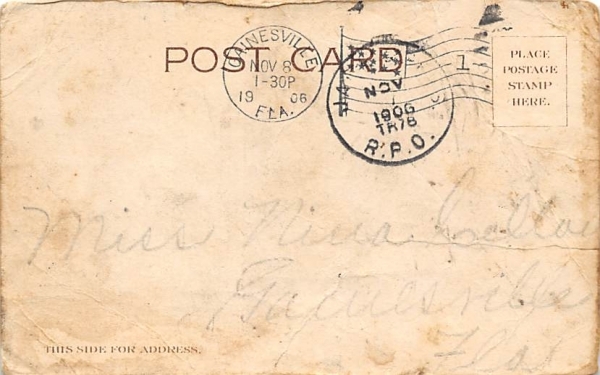 POST CARD
GAINESVILLE
NOV 8
1-30P
19 06
FLA.
NOV
1906
TR78
R.P.O.
1
PLACE
POSTAGE
STAMP
HERE.
Miss Nina
Gainesville
Fla
THIS SIDE FOR ADDRESS.